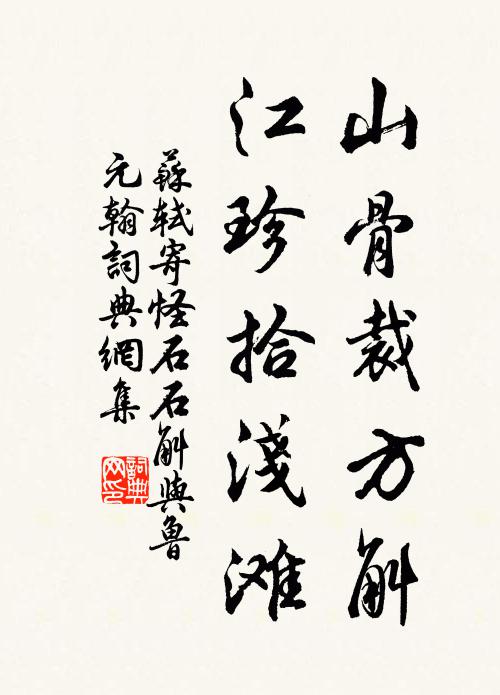 山骨裁方斛
江珍拾淺滩
蘇軾寄怪石石斛與魯
元翰詞典網集
詞典網印